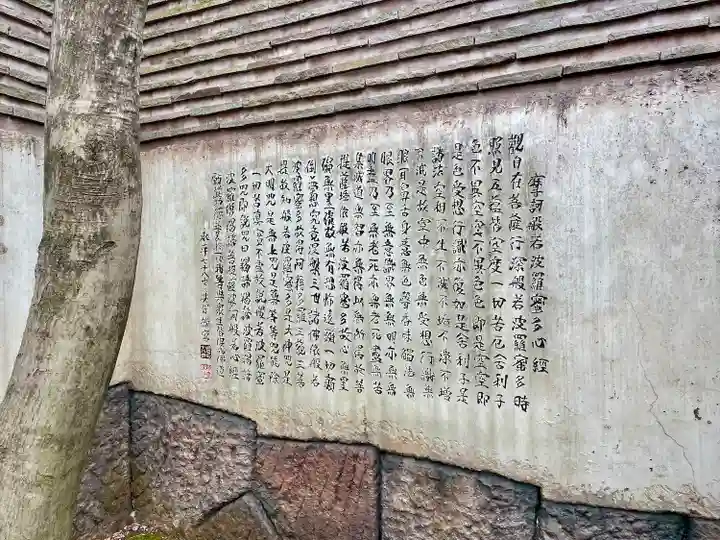 摩訶般若波羅蜜多心經
觀自在菩薩行深般若波羅蜜多時
照見五蘊皆空度一切苦厄舍利子
色不異空空不異色色即是空空即
是色受想行識亦復如是舍利子是
諸法空相不生不滅不垢不淨不增
不減是故空中無色無受想行識無
眼耳鼻舌身意無色聲香味觸法無
眼界乃至無意識界無無明亦無無
明盡乃至無老死亦無老死盡無苦
集滅道無智亦無得以無所得故菩
提薩埵依般若波羅蜜多故心無罣
礙無罣礙故無有恐怖遠離一切顛
倒夢想究竟涅槃三世諸佛依般若
波羅蜜多故得阿耨多羅三藐三菩
提故知般若波羅蜜多是大神呪是
大明呪是無上呪是無等等呪能除
一切苦真實不虛故說般若波羅蜜
多呪即說呪曰羯諦羯諦波羅羯諦
波羅僧羯諦菩提薩婆訶般若心經